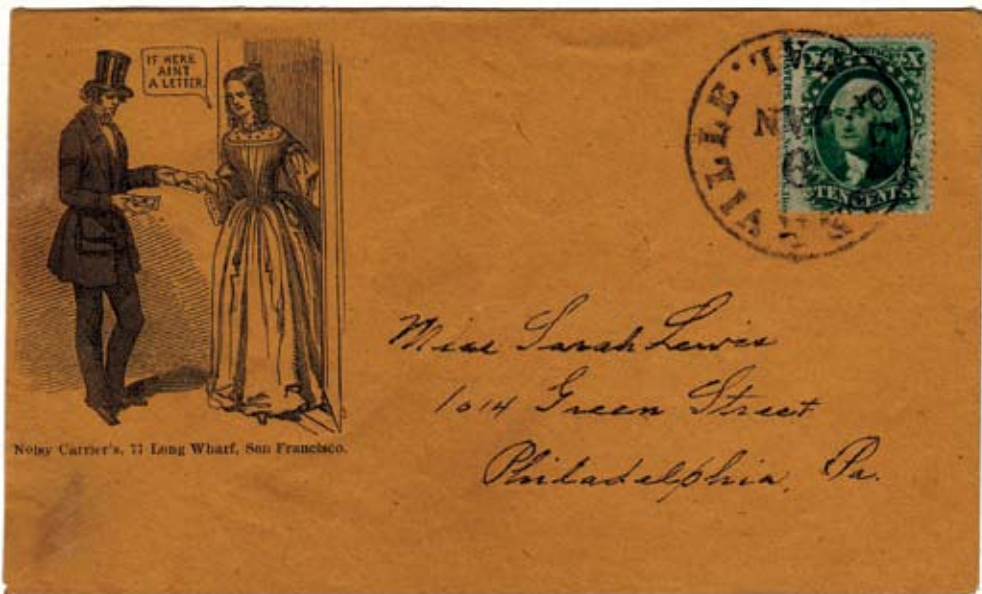 IF HERE
AINT
A LETTER.
Noisy Carrier's, 77 Long Wharf, San Francisco.
VILLE
CAL.
X X
TEN CENTS
Miss Sarah Lewis
1014 Green Street
Philadelphia, Pa.